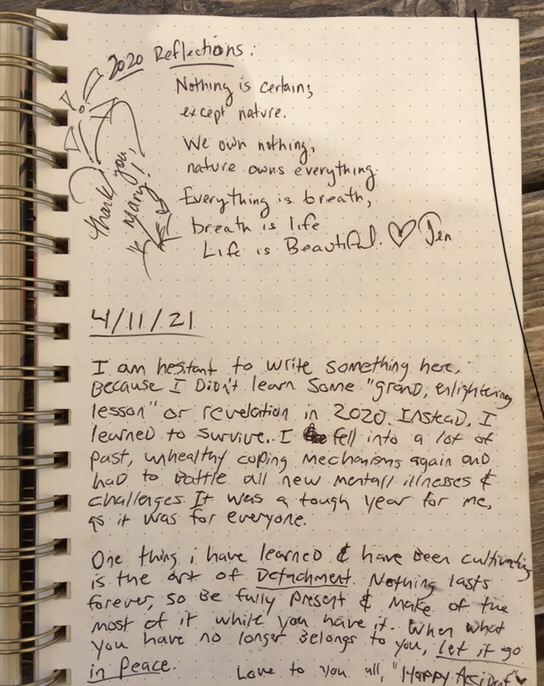 2020 Reflections:
Nothing is certain,
except nature.
We own nothing,
nature owns everything.
Everything is breath,
breath is life
Life is Beautiful. ♡ Jen
Thank you,
Mary!
4/11/21
I am hesitant to write something here,
Because I Didn't learn some "grand, enlightening
lesson" or revelation in 2020. Instead, I
learned to survive. I fell into a lot of
past, unhealthy coping mechanisms again and
had to battle all new mental illnesses &
challenges. It was a tough year for me,
as it was for everyone.
One thing i have learned & have been cultivating
is the art of Detachment. Nothing lasts
forever, so Be fully present & make of the
most of it while you have it. When what
you have no longer Belongs to you, let it go
in Peace.
Love to you all, "Happy Accident" ♥